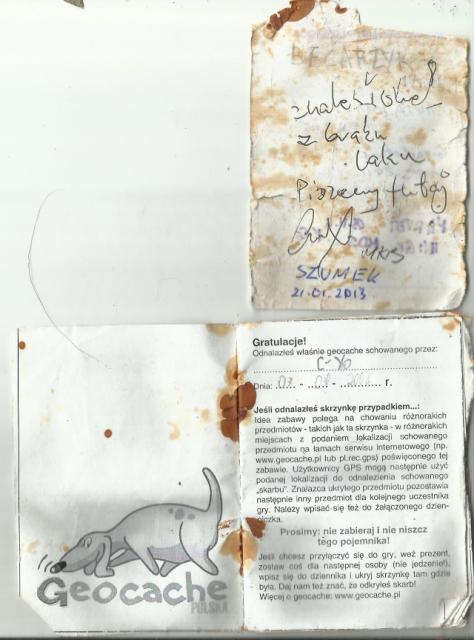 BECARZYK
znaleźione!
z braku
laku
Piszemy tutaj
SZUMEK
21.01.2013
Gratulacje!
Odnalazłeś właśnie geocache schowanego przez:
C-Yo
Dnia:
r.
Jeśli odnalazłeś skrzynkę przypadkiem...:
Idea zabawy polega na chowaniu różnorakich
przedmiotów - takich jak ta skrzynka - w różnorakich
miejscach z podaniem lokalizacji schowanego
przedmiotu na łamach serwisu internetowego (np.
www.geocache.pl lub pl.rec.gps) poświęconego tej
zabawie. Użytkownicy GPS mogą następnie użyć
podanej lokalizacji do odnalezienia schowanego
„skarbu”. Znalazca ukrytego przedmiotu pozostawia
następnie inny przedmiot dla kolejnego uczestnika
gry. Należy wpisać się też do załączonego dzien-
niczka.
Prosimy: nie zabieraj i nie niszcz
tego pojemnika!
Jeśli chcesz przyłączyć się do gry, weź prezent,
zostaw coś dla następnej osoby (nie jedzenie!),
wpisz się do dziennika i ukryj skrzynkę tam gdzie
była. Daj nam też znać, że odkryłeś skarb!
Więcej o geocache: www.geocache.pl
Geocache
POLSKA